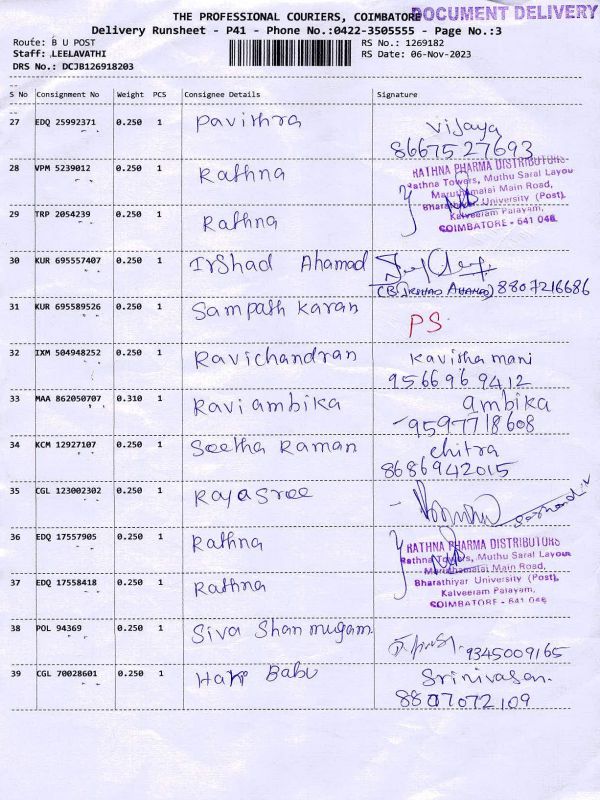 THE PROFESSIONAL COURIERS, COIMBATORE
DOCUMENT DELIVERY
Delivery Runsheet - P41 - Phone No.:0422-3505555 - Page No.:3
Route: B U POST RS No.: 1269182
Staff: LEELAVATHI RS Date: 06-Nov-2023
DRS No.: DCJB126918203
S No Consignment No Weight PCS Consignee Details Signature
27 EDQ 25992371 0.250 1 Pavithra Vijaya
8667527693
28 VPM 5239012 0.250 1 Rathna
RATHNA PHARMA DISTRIBUTORS
Rathna Towers, Muthu Saral Layou
Maruthamalai Main Road,
29 TRP 2054239 0.250 1 Rathna
Bharathiyar University (Post),
Kalveeram Palayam,
COIMBATORE - 641 046
30 KUR 695557407 0.250 1 Irshad Ahamad
(B. IRSHAD AHAMAD) 8807216686
31 KUR 695589526 0.250 1 Sampath Karan PS.
32 IXM 504948252 0.250 1 Ravichandran Kavitha mani
9566969412
33 MAA 862050707 0.310 1 Raviambika ambika
9597718608
34 KCM 12927107 0.250 1 Seetha Raman chitra
8686942015
35 CGL 123002302 0.250 1 Rajasree
36 EDQ 17557905 0.250 1 Rathna
RATHNA PHARMA DISTRIBUTORS
Rathna Towers, Muthu Saral Layou
Maruthamalai Main Road,
37 EDQ 17558418 0.250 1 Rathna
Bharathiyar University (Post),
Kalveeram Palayam,
COIMBATORE - 641 046
38 POL 94369 0.250 1 Siva Shanmugam 9345009165
39 CGL 70028601 0.250 1 Hari Babu Srinivasan.
8807072109